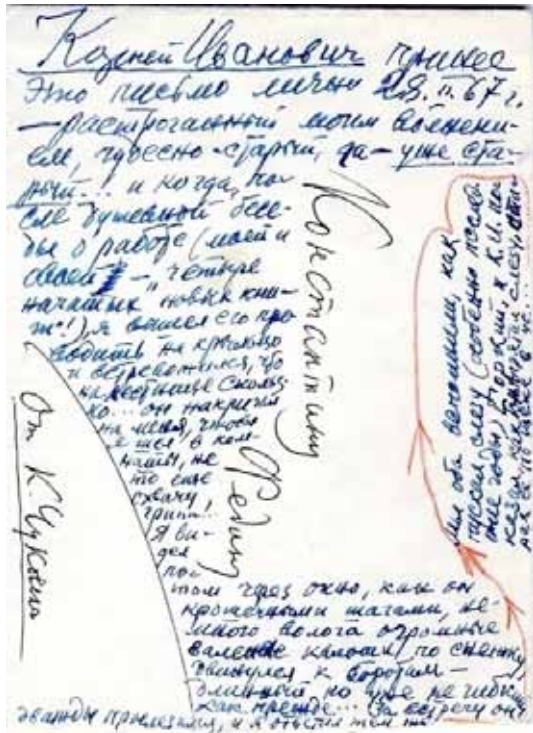 Корней Иванович принес
Это письмо лично 28.II.67 г.
— растроганный моим волнени-
ем, чудесно-старый, да — уже ста-
рый!.. и когда, по-
сле душевной бесе-
ды о работе (моей и
своей — "четыре
начатых новых кни-
ж"!), я вышел его про-
водить на крыльцо
и встревожился, что
на лестнице скольз-
ко... он накричал
на меня, чтобы
я шел в ком-
наты, не
то еще
схвачу
грипп!
Я ви-
дел
по-
том через окно, как он
крошечными шагами, не-
много волоча огромные
валенки калоши, по снежку
двинулся к воротам —
длинный, но уже не гибк
как прежде... (За встречу он
дважды прослезился, и я ответил тем же
Константину
Федину
От К. Чуковского
Мы оба вспомнили, как
(особенно послед
ние годы) Горький, к К.И. по
казал, как